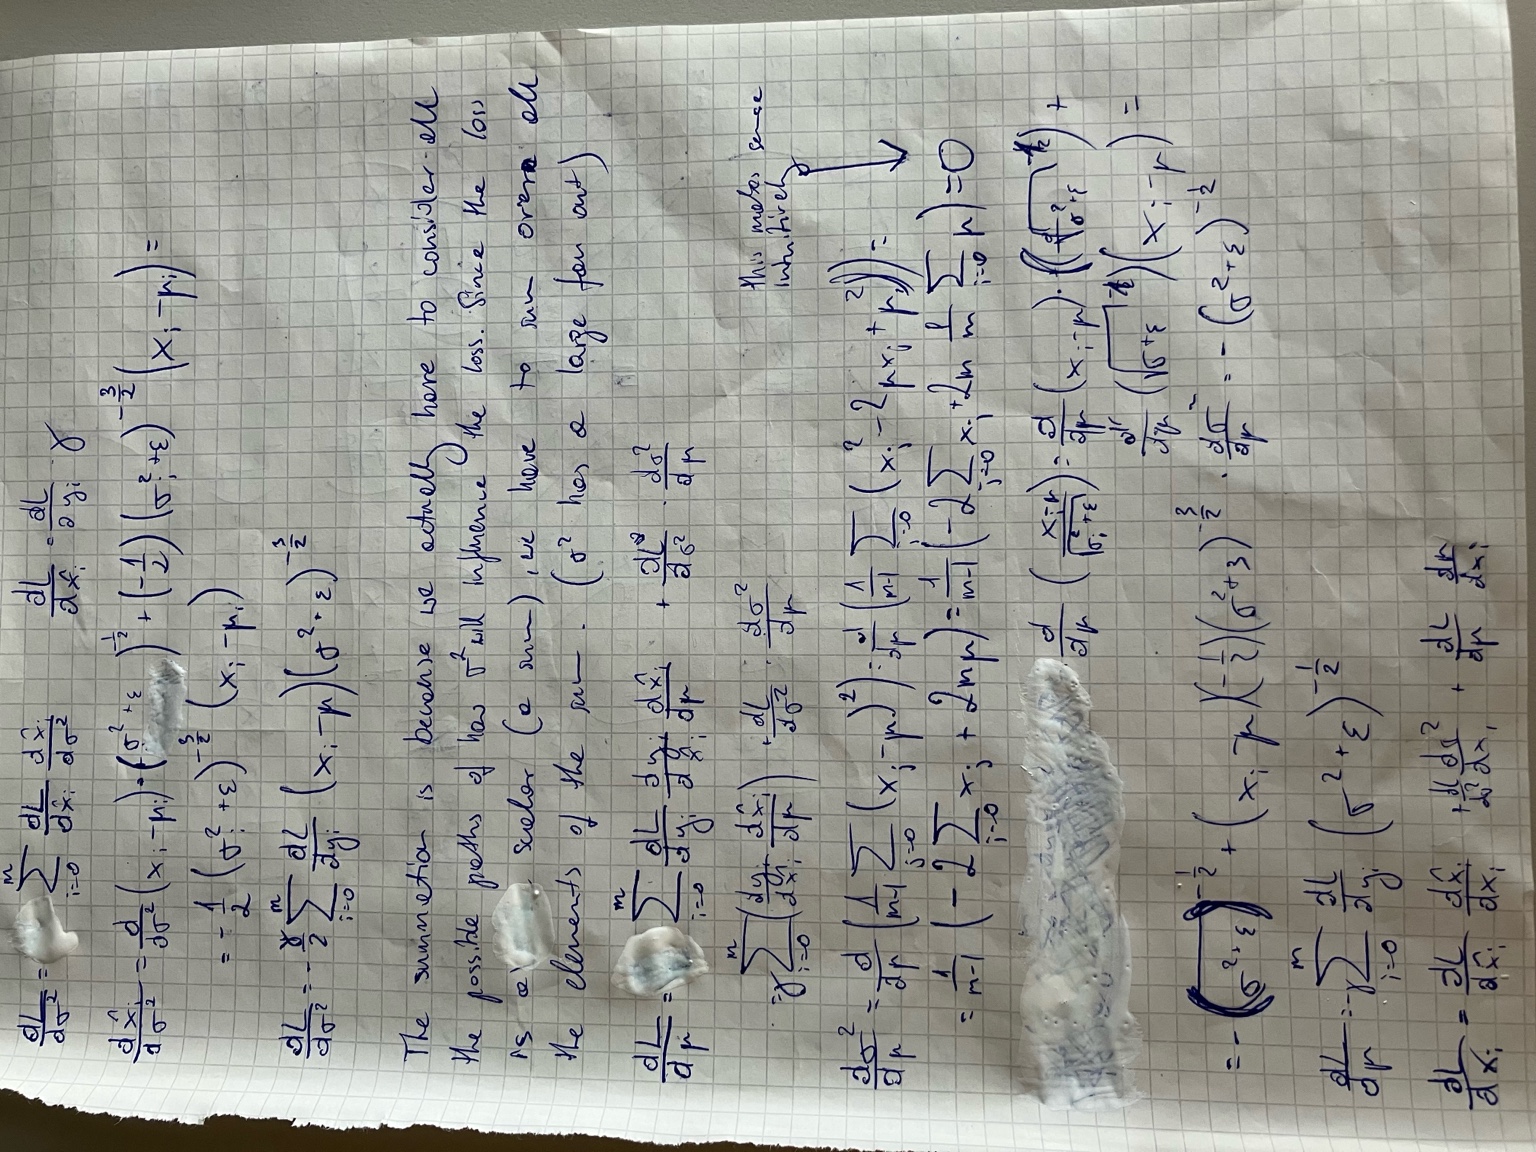 dL/dσ² = Σ_{i=0}^{m} dL/dx̂_i dx̂_i/dσ²    dL/dx̂_i = dL/∂y_i · γ
dx̂_i/dσ² = d/dσ² (x_i - μ_i) · (σ² + ε)^{-1/2} + (-1/2) (σ_i² + ε)^{-3/2} (x_i - μ_i) =
= -1/2 (σ_i² + ε)^{-3/2} (x_i - μ_i)
dL/dσ² = -γ/2 Σ_{i=0}^{m} dL/dy_i (x_i - μ)(σ² + ε)^{-3/2}
The summation is because we actually have to consider all
the possible paths of how σ² will influence the loss. Since the loss
is a scalar (a sum), we have to sum over all
the elements of the sum. (σ² has a large fan out)
dL/dμ = Σ_{i=0}^{m} dL/dy_i dy_i/dx̂_i dx̂_i/dμ + dL/dσ² · dσ²/dμ
= γ Σ_{i=0}^{m} (dy_i/dx̂_i dx̂_i/dμ) + dL/dσ² · dσ²/dμ
this makes sense
intuitively
dσ²/dμ = d/dμ (1/(m-1) Σ_{j=0} (x_j - μ)²) = d/dμ (1/(m-1) Σ_{j=0} (x_j² - 2μx_j + μ²)) =
= 1/(m-1) (-2 Σ_{j=0} x_j + 2mμ) = 1/(m-1) (-2 Σ_{j=0} x_j + 2m 1/m Σ_{j=0} μ) = 0
d/dμ ((x_i - μ)/√(σ_i² + ε)) = d/dμ (x_i - μ) · (σ² + ε)^{-1/2} +
d/dμ (√(σ + ε)^{-1/2})(x_i - μ) =
= -(σ² + ε)^{-1/2} + (x_i - μ)(-1/2)(σ² + ε)^{-3/2} · dσ²/dμ = -(σ² + ε)^{-1/2}
dL/dμ = -γ Σ_{i=0}^{m} dL/dy_i (σ² + ε)^{-1/2}
dL/dx_i = dL/dx̂_i dx̂_i/dx_i + dL/dσ² dσ²/dx_i + dL/dμ dμ/dx_i